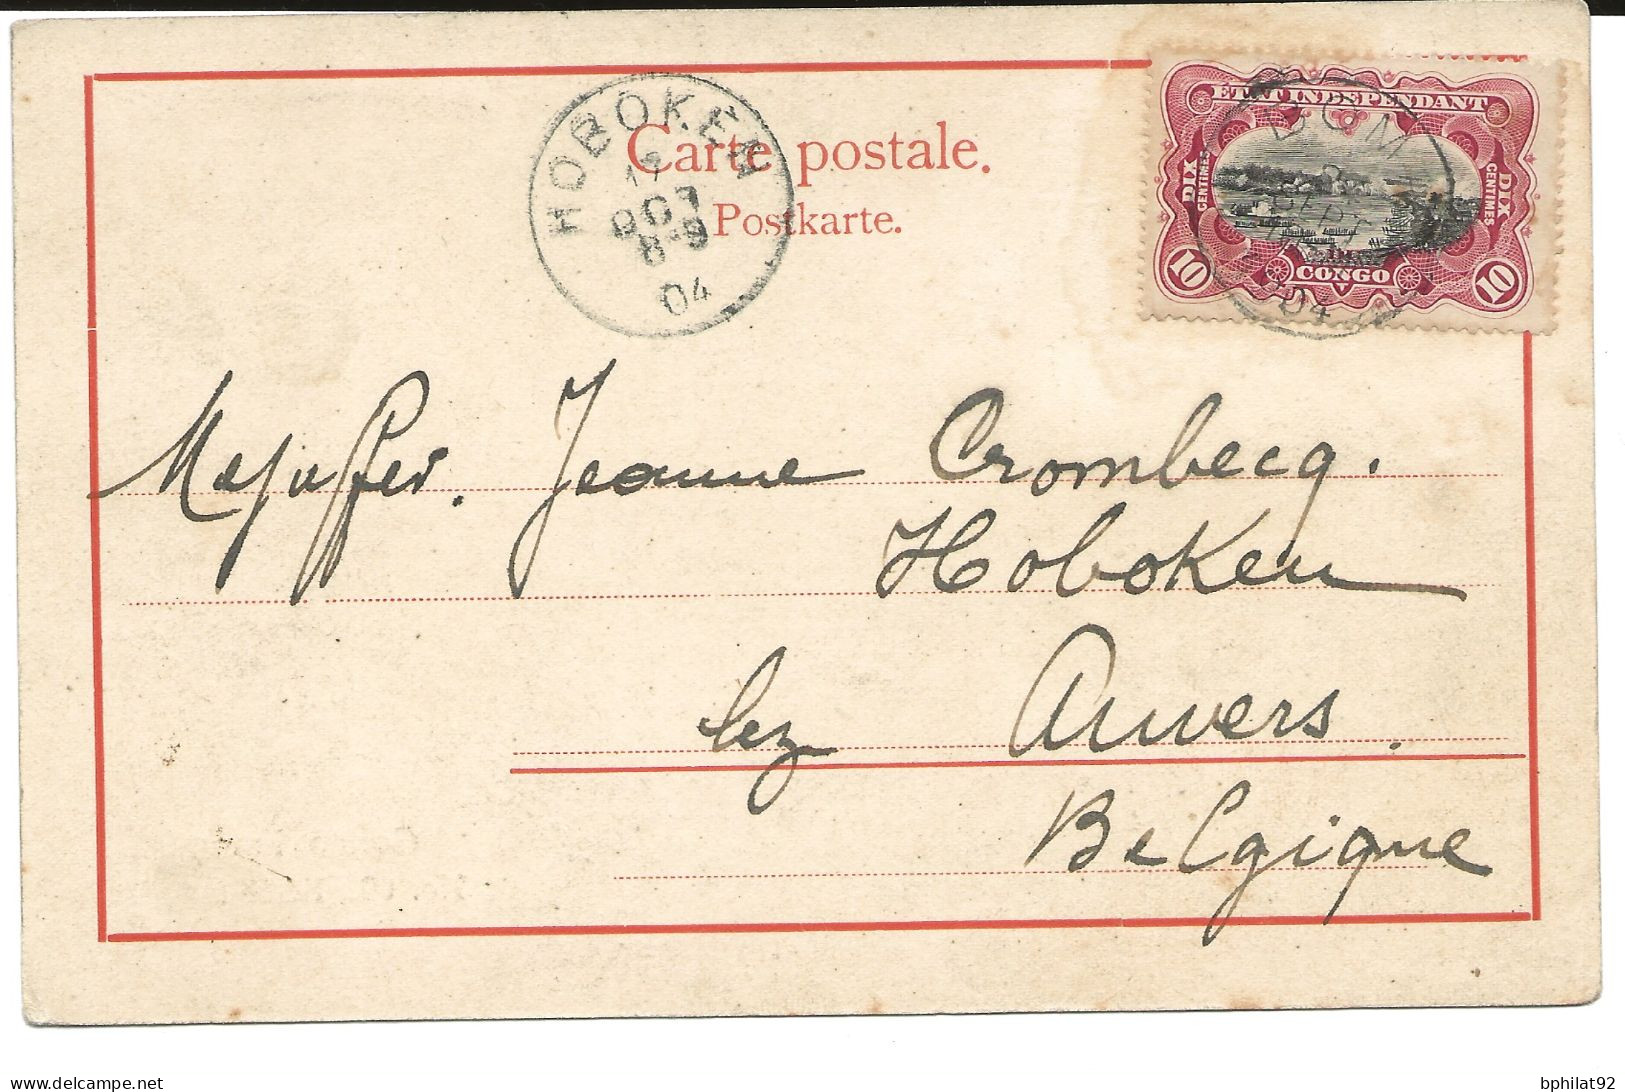 Carte postale.
Postkarte.
HOBOKEN
OCT
8-9
04
ETAT INDEPENDANT
DIX CENTIMES
DIX CENTIMES
10
CONGO
10
SEPT
04
Mejuffer. Jeanne Crombecq.
Hoboken
lez Anvers.
Belgique
bphilat92